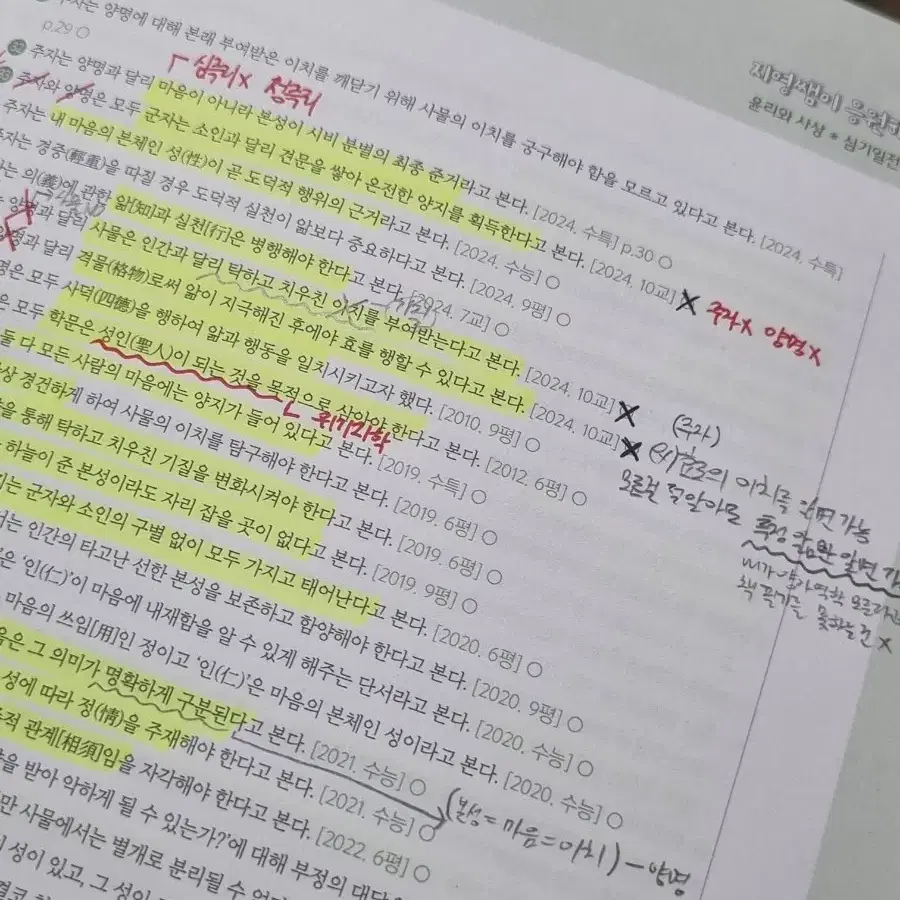 주자는 양명에 대해 본래 부여받은 이치를 깨닫기 위해 사물의 이치를 궁구해야 함을 모르고 있다고 본다. [2024. 수특]
p.29 ○
「심즉리x 성즉리
주자는 양명과 달리 마음이 아니라 본성이 시비 분별의 최종 준거라고 본다. [2024. 수특] p.30 ○
주자와 양명은 모두 군자는 소인과 달리 견문을 쌓아 온전한 양지를 획득한다고 본다. [2024. 10교] X 주자x 양명x
주자는 내 마음의 본체인 성(性)이 곧 도덕적 행위의 근거라고 본다. [2024. 수능] ○
자는 경중(輕重)을 따질 경우 도덕적 실천이 앎보다 중요하다고 본다. [2024. 9평] ○
의(義)에 관한 앎[知]과 실천[行]은 병행해야 한다고 본다. [2024. 7교] ○
달리 사물은 인간과 달리 탁하고 치우친 이치를 부여받는다고 본다. [2024. 10교] X
과 달리 격물(格物)로써 앎이 지극해진 후에야 효를 행할 수 있다고 본다. [2024. 10교] X
(주자)
명은 모두 사덕(四德)을 행하여 앎과 행동을 일치시키고자 했다. [2010. 9평] ○
은 모두 학문은 성인(聖人)이 되는 것을 목적으로 삼아야 한다고 본다. [2012. 6평] ○
위기지학
둘 다 모든 사람의 마음에는 양지가 들어 있다고 본다. [2019. 수특] ○
상 경건하게 하여 사물의 이치를 탐구해야 한다고 본다. [2019. 6평] ○
을 통해 탁하고 치우친 기질을 변화시켜야 한다고 본다. [2019. 6평] ○
하늘이 준 본성이라도 자리 잡을 곳이 없다고 본다. [2019. 9평] ○
는 군자와 소인의 구별 없이 모두 가지고 태어난다고 본다. [2020. 6평] ○
서는 인간의 타고난 선한 본성을 보존하고 함양해야 한다고 본다. [2020. 9평] ○
은 '인(仁)'이 마음에 내재함을 알 수 있게 해주는 단서라고 본다. [2020. 수능] ○
마음의 쓰임[用]인 정이고 '인(仁)'은 마음의 본체인 성이라고 본다. [2020. 수능] ○
음은 그 의미가 명확하게 구분된다고 본다. [2021. 수능] ○
성에 따라 정(情)을 주재해야 한다고 본다. [2021. 수능] ○
적 관계[相須]임을 자각해야 한다고 본다. [2022. 6평] ○
(본성=마음=이치) - 양명
을 받아 악하게 될 수 있는가?'에 대해 부정의 대답
만 사물에서는 별개로 분리될 수
성이 있고, 그 성이
이치를
가능
모르는
윤리와 사상 * 심기일전